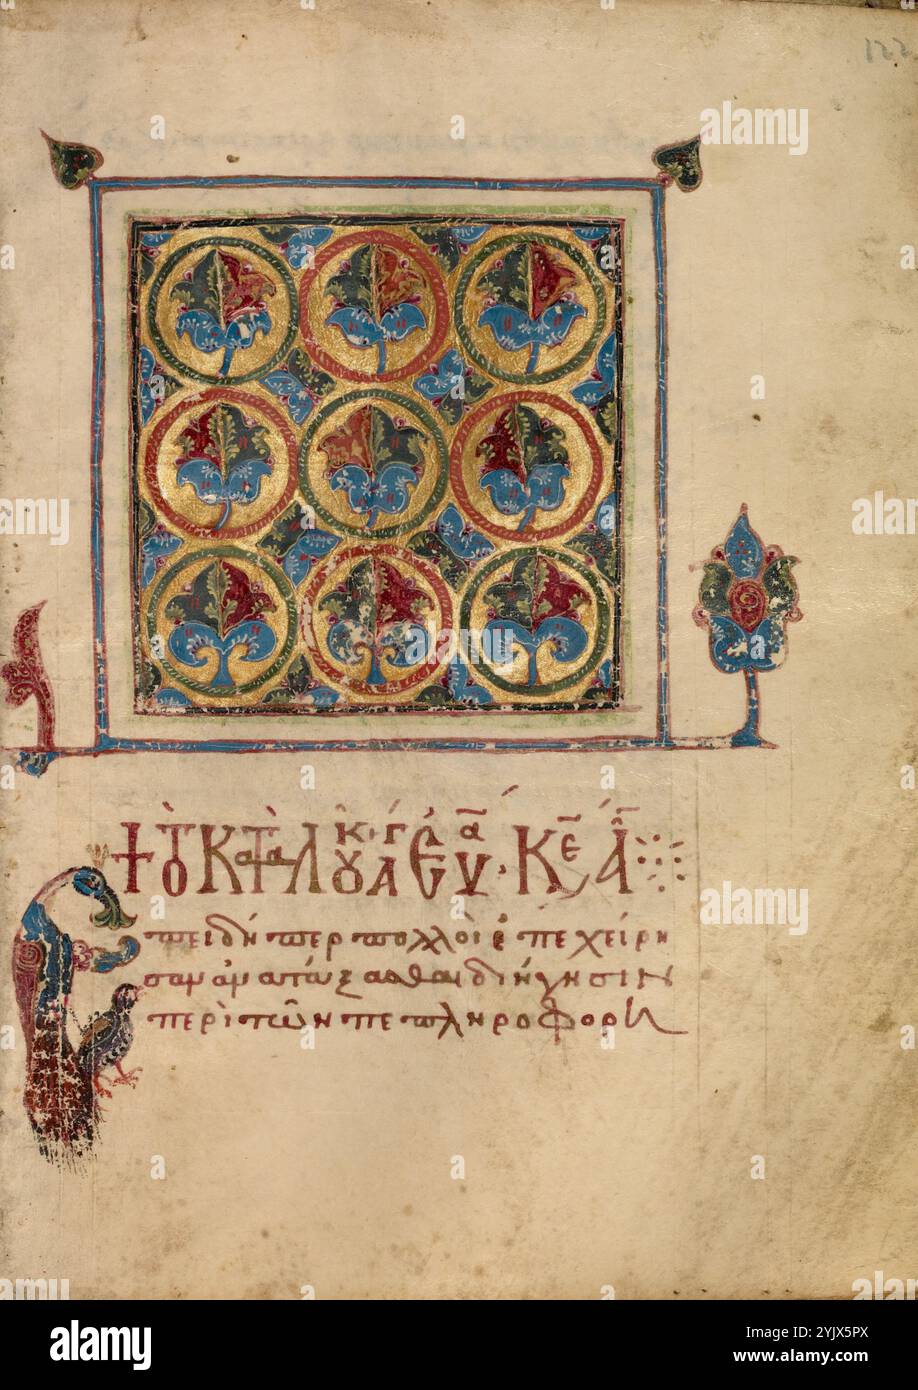 122
† τὸ κατὰ λουκ· ἁγ εὐα · κε α
ἐπειδήπερ πολλοὶ ἐπεχείρη
σαν ἀνατάξασθαι διήγησιν
περὶ τῶν πεπληροφορη
alamy
alamy
Image ID: 2YJX5PX
www.alamy.com